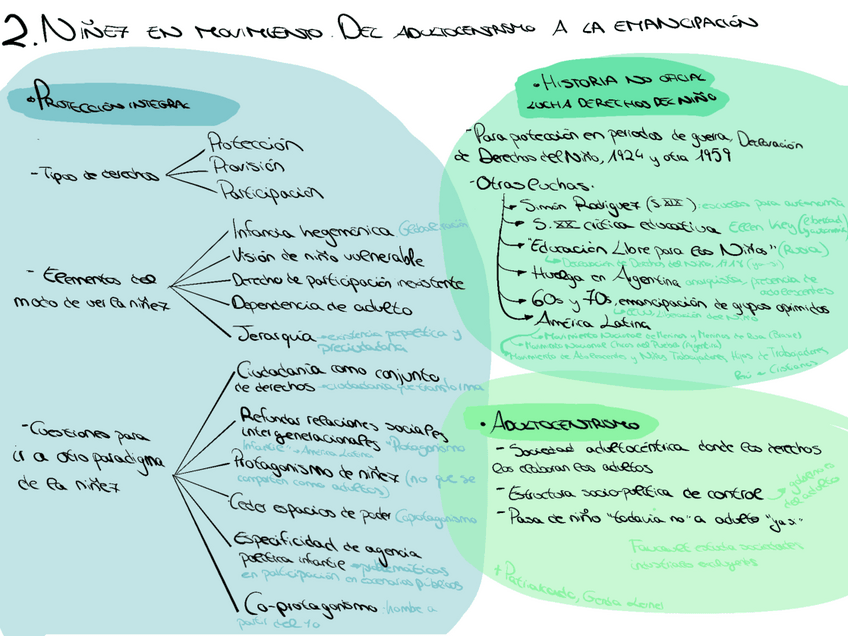 2. NIÑEZ EN MOVIMIENTO. DEL ADULTOCENTRISMO A LA EMANCIPACIÓN
• PROTECCIÓN INTEGRAL
- Tipos de derechos
Protección
Provisión
Participación
- Elementos del
modo de ver la niñez
Infancia hegemónica Globalización
Visión de niño vulnerable
Derecho de participación inexistente
Dependencia de adulto
Jerarquía existencia prepolítica y
preciudadana
- Cuestiones para
ir a otro paradigma
de la niñez
Ciudadanía como conjunto
de derechos ciudadanía que transforma
Refundar relaciones sociales
intergeneracionales "Protagonismo
Infantil" América Latina
Protagonismo de niñez (no que se
comporten como adultos)
Ceder espacios de poder Coprotagonismo
Especificidad de agencia
política infantil problemáticas
en participación en escenarios públicos
Co-protagonismo hombre a
partir del yo
• HISTORIA NO OFICIAL
LUCHA DERECHOS DEL NIÑO
- Para protección en periodos de guerra, Declaración
de Derechos del Niño, 1924 y otra 1959
- Otras luchas.
Simón Rodríguez (S.XIX) escuelas para autonomía
S. XX crítica educativa Ellen Key (libertad
y autonomía)
"Educación Libre para los Niños" (Rusia)
Declaración de Derechos del Niño, 1918
Huelga en Argentina anarquista, presencia de
adolescentes
60s y 70s, emancipación de grupos oprimidos
Liberación del Niño
América Latina
Movimiento Nacional de Meninos y Meninas de Rua (Brasil)
Movimiento Nacional Chicos del Pueblo (Argentina)
Movimiento de Adolescentes y Niños Trabajadores, Hijos de Trabajadores
Cristianos
• ADULTOCENTRISMO
- Sociedad adultocéntrica donde los derechos
los elaboran los adultos
- Estructura socio-política de control gobierno
del adulto
- Pasa de niño "todavía no" a adulto "ya sí"
Foucault estudia sociedades
+ Patriarcado, Gerda Lerner